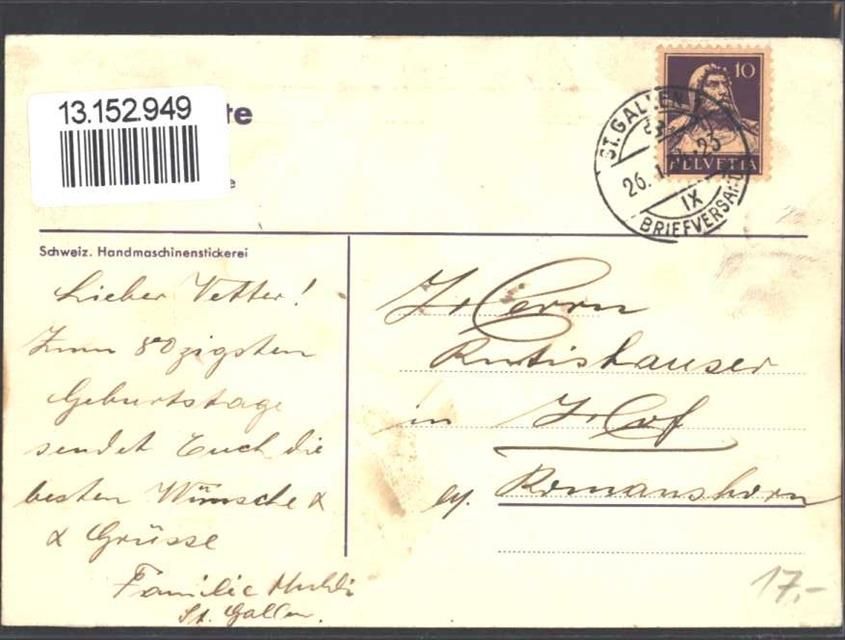 13.152.949
te
e
10
HELVETIA
ST. GALLEN
26. I. 23
IX
BRIEFVERSAND
Schweiz. Handmaschinenstickerei
Lieber Vetter!
Zum 80zigsten
Geburtstage
sendet Euch die
besten Wünsche &
& Grüsse
Familie
St. Gallen.
Herrn
Rutishauser
in Hof
Romanshorn
17.-